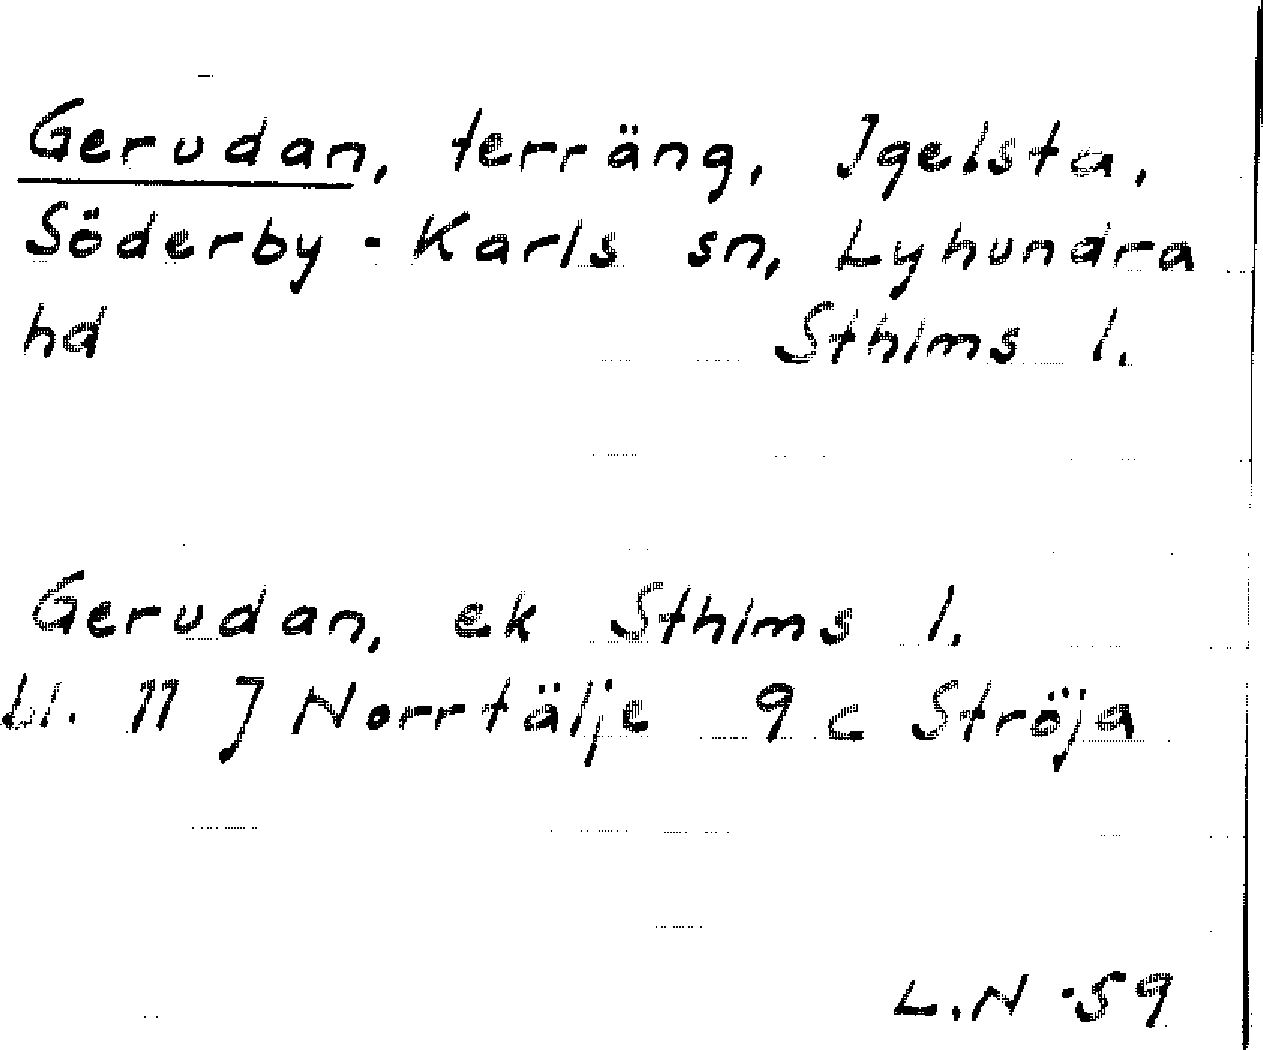 Gerudan, terräng, Igelsta,
Söderby-Karls sn, Lyhundra
hd Sthlms l.
Gerudan, ek Sthlms l.
bl. 11 J Norrtälje 9 c Ströja
L.N -59